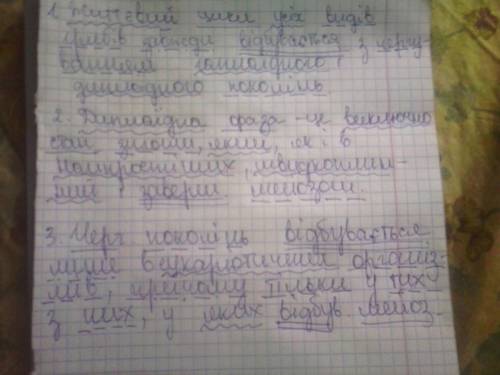 1. Життєвий цикл усіх видів
грибів завжди відбувається з чергу-
ванням гаплоїдного і
диплоїдного поколінь
2. Диплоїдна фаза - це виключно
стан зиготи, який, як і в
найпростіших,
заверш мейозом.
3. Черг поколінь відбувається
лише в еукаротичних організ-
мів, причому тільки у тих
з них, у яких відбув. мейоз.